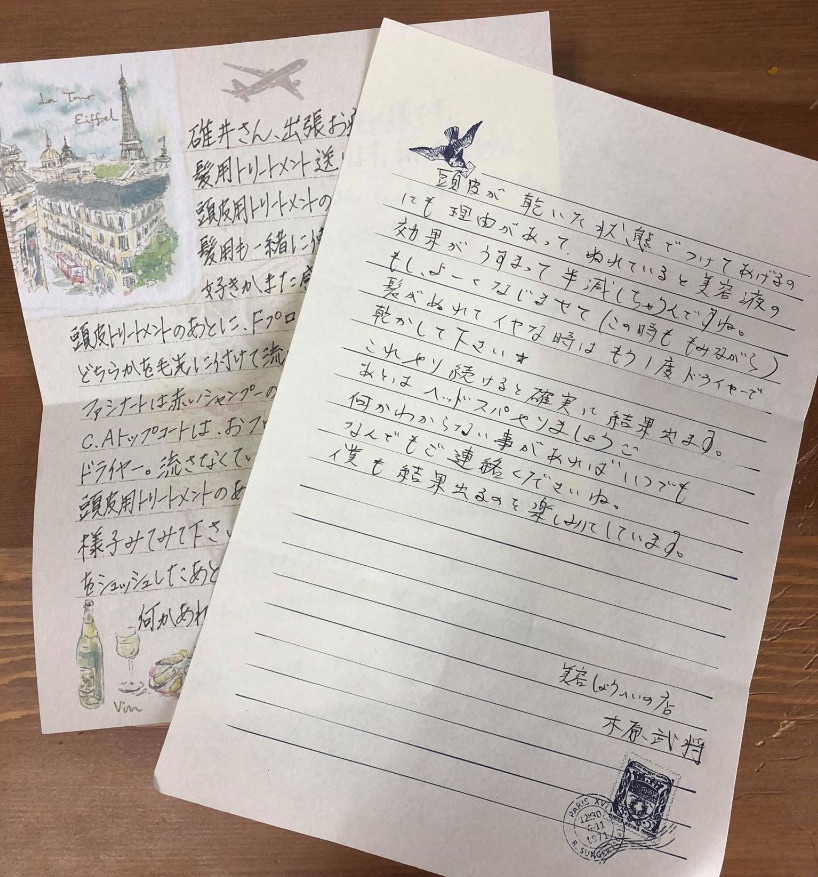 La Tour
Eiffel
碓井さん、出張お疲
髪用トリートメント送
頭皮用トリートメントの
髪用も一緒に使
好きかまた感
頭皮トリートメントのあとに、Fプロ
どちらかを毛先に付けて流
ファシナートは赤いシャンプーの
C.Aトップコートは、おフロ
ドライヤー。流さなくてい
頭皮用トリートメントのあ
様子みてみて下さい
をシュッシュしたあと
何かあれ
Vin
頭皮が乾いた状態でつけてあげるの
にも理由があって、ぬれていると美容液の
効果がうすまって半減しちゃうんですね。
もし、よーくなじませて(この時ももみながら)
髪がぬれてイヤな時はもう1度ドライヤーで
乾かして下さい★
これやり続けると確実に結果出ます。
あとはヘッドスパやりましょう
何かわからない事があればいつでも
なんでもご連絡くださいね。
僕も結果出るのを楽しみにしています。
美容しょうへいの店
木原武将
PARIS XVI
12H30
1971